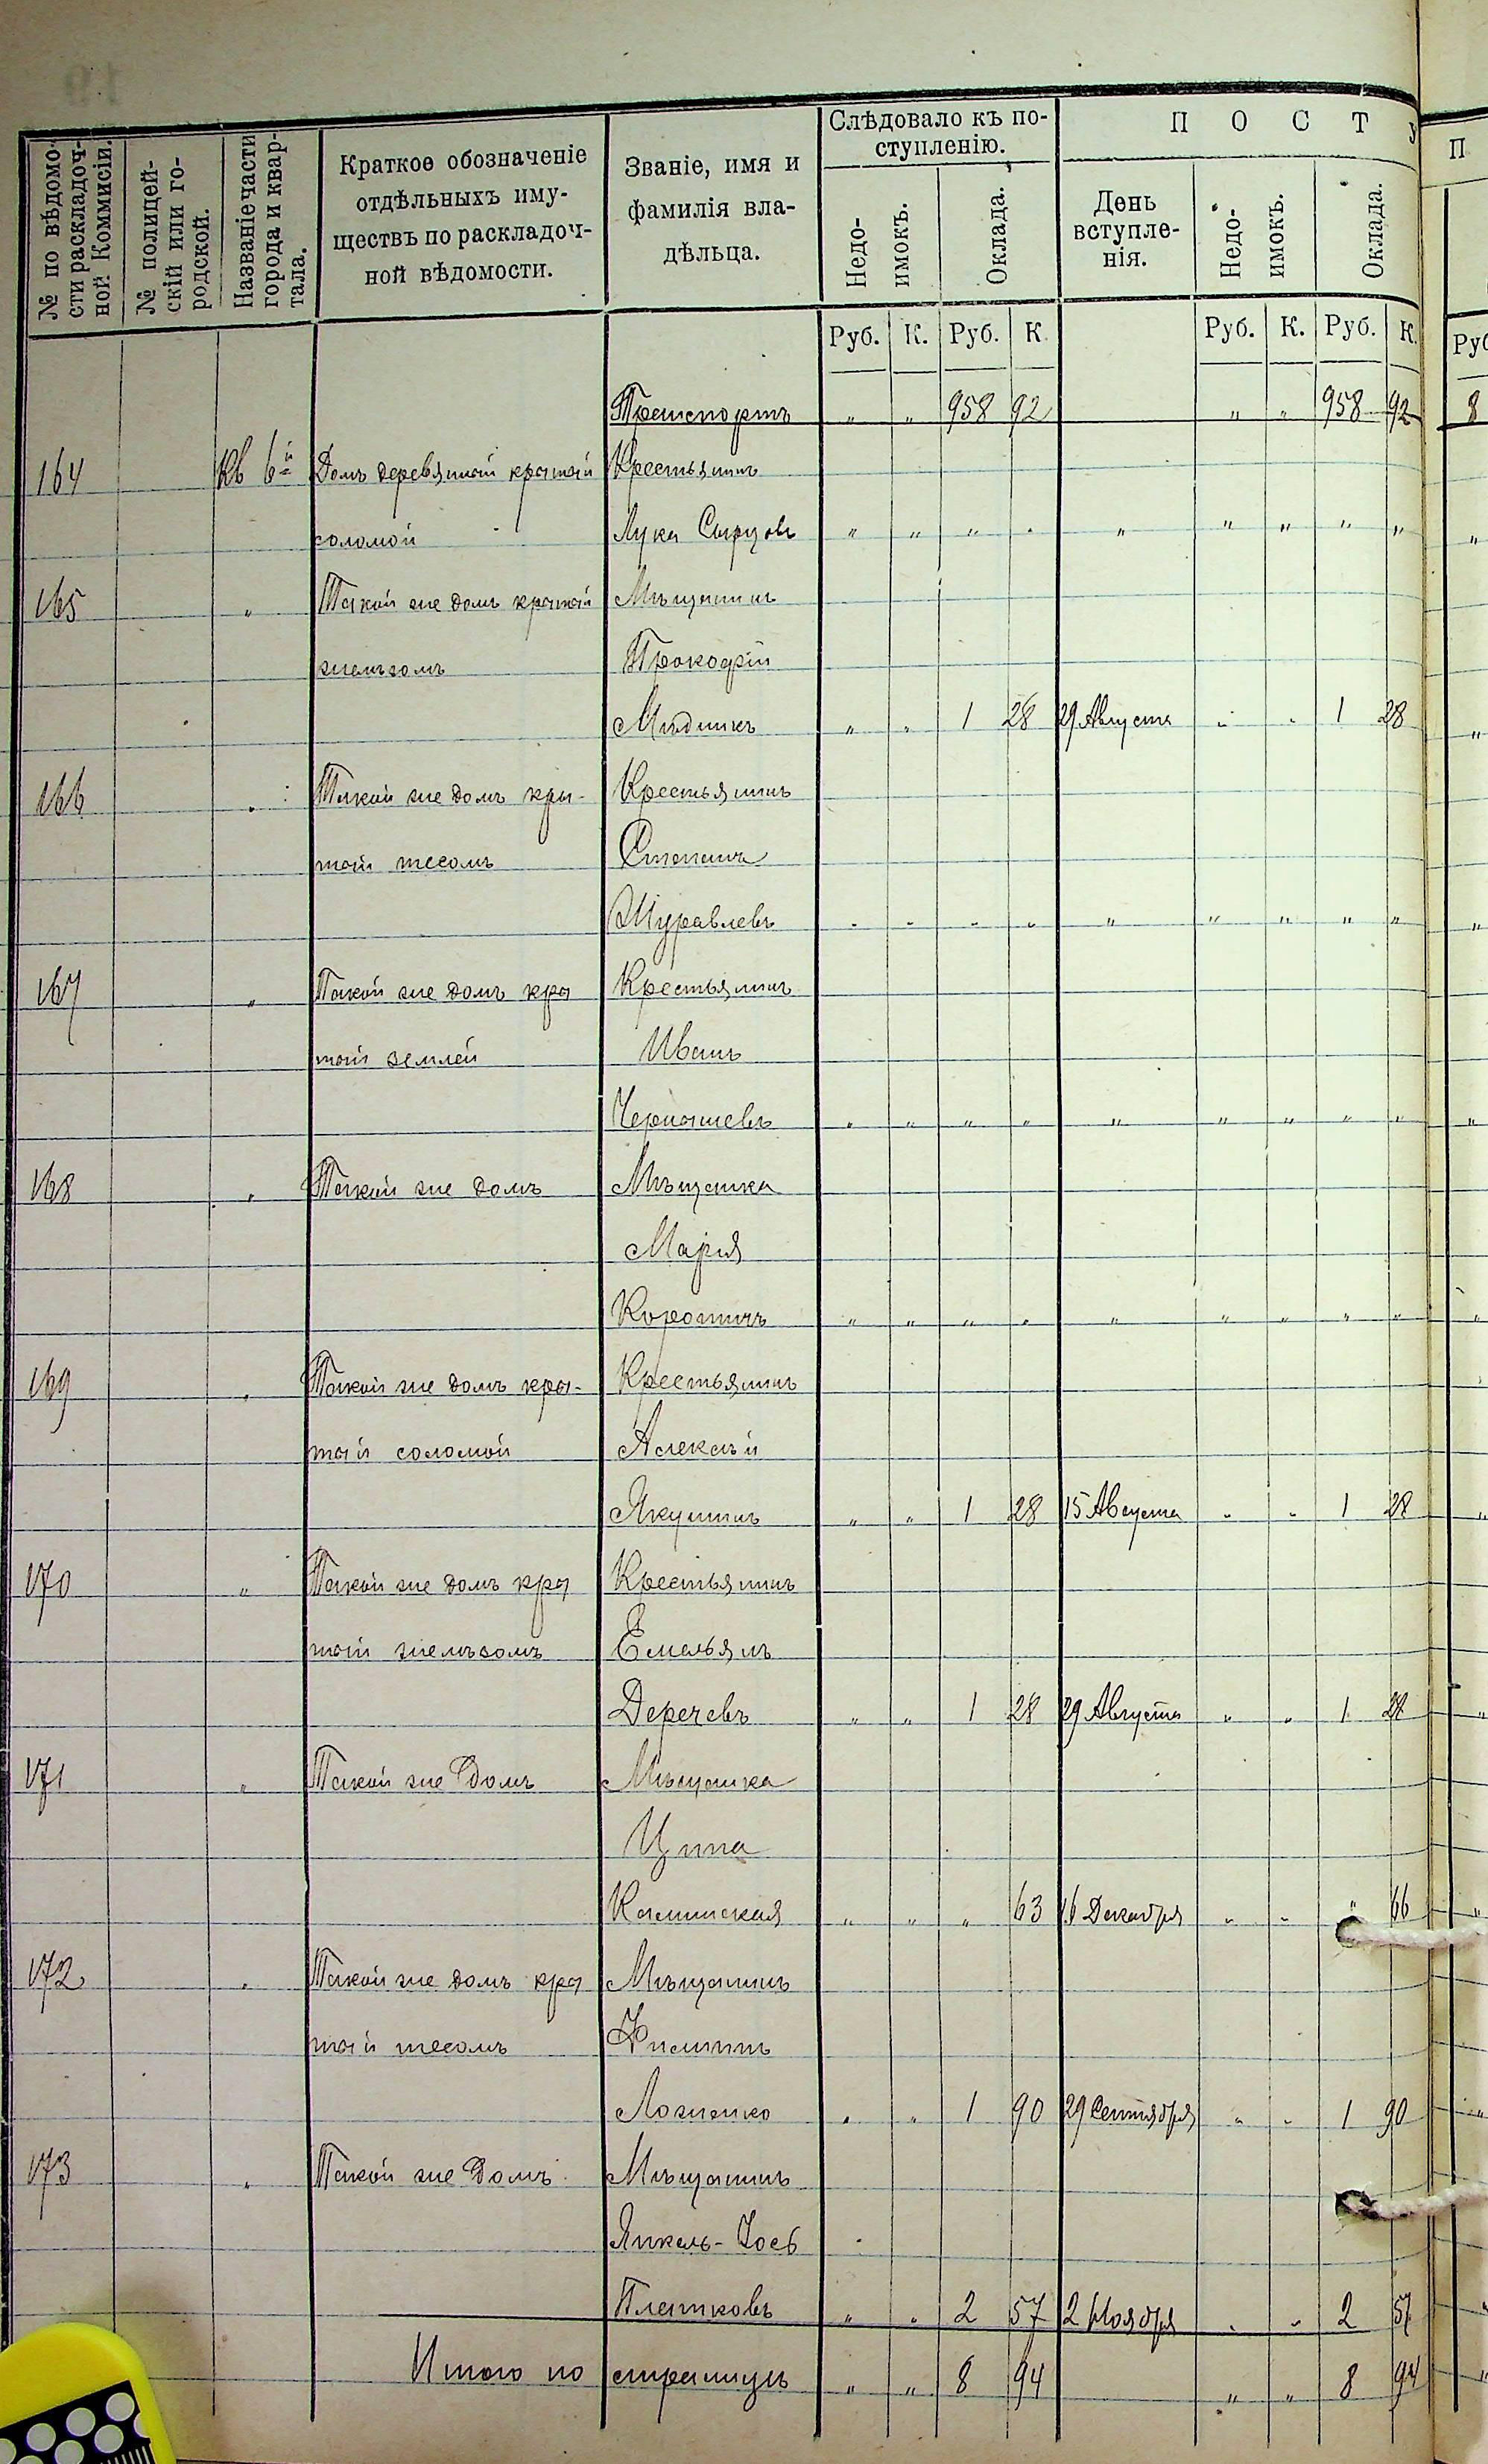 № по вѣдомости раскладочной Коммисіи.
№ полицейскій или городской.
Названіе части города и квартала.
Краткое обозначеніе отдѣльныхъ имуществъ по раскладочной вѣдомости.
Званіе, имя и фамилія владѣльца.
Слѣдовало къ поступленію.
Недоимокъ. Оклада.
П О С Т У
День вступленія.
Недоимокъ. Оклада.
П
Руб. К. Руб. К. Руб. К. Руб. К. Руб
Транспортъ „ „ 958 92 „ „ 958 92 8
164 Кв 6й Домъ деревяный крытый Крестьянинъ
соломой Лука Сырцовъ „ „ „ „ „ „ „ „ „ „
165 „ Такой же домъ крытый Мѣщанинъ
желѣзомъ Прокофій
Мѣдникъ „ „ 1 28 29 Августа „ „ 1 28 „
166 „ Такой же домъ кры-
Крестьянинъ
тый тесомъ Степанъ
Журавлевъ „ „ „ „ „ „ „ „ „ „
167 „ Такой же домъ кры Крестьянинъ
тый землей Иванъ
Чернышевъ „ „ „ „ „ „ „ „ „ „
168 „ Такой же домъ Мѣщанка
Марія
Коротичъ „ „ „ „ „ „ „ „ „ „
169 „ Такой же домъ кры- Крестьянинъ
тый соломой Алексѣй
Якушинъ „ „ 1 28 15 Августа „ „ 1 28 „
170 „ Такой же домъ кры Крестьянинъ
тый желѣзомъ Емельянъ
Деречевъ „ „ 1 28 29 Августа „ „ 1 28 „
171 „ Такой же домъ Мѣщанка
Ципа
Каминская „ „ „ 63 16 Декабря „ „ „ 66 „
172 „ Такой же домъ кры Мѣщанинъ
тый тесомъ Филиппъ
Ложенко „ „ 1 90 29 Сентября „ „ 1 90 „
173 „ Такой же домъ Мѣщанинъ
Янкель-Іось
Плетковъ „ „ 2 57 2 Ноября „ „ 2 57 „
Итого по страницѣ „ „ 8 94 „ „ 8 94 „